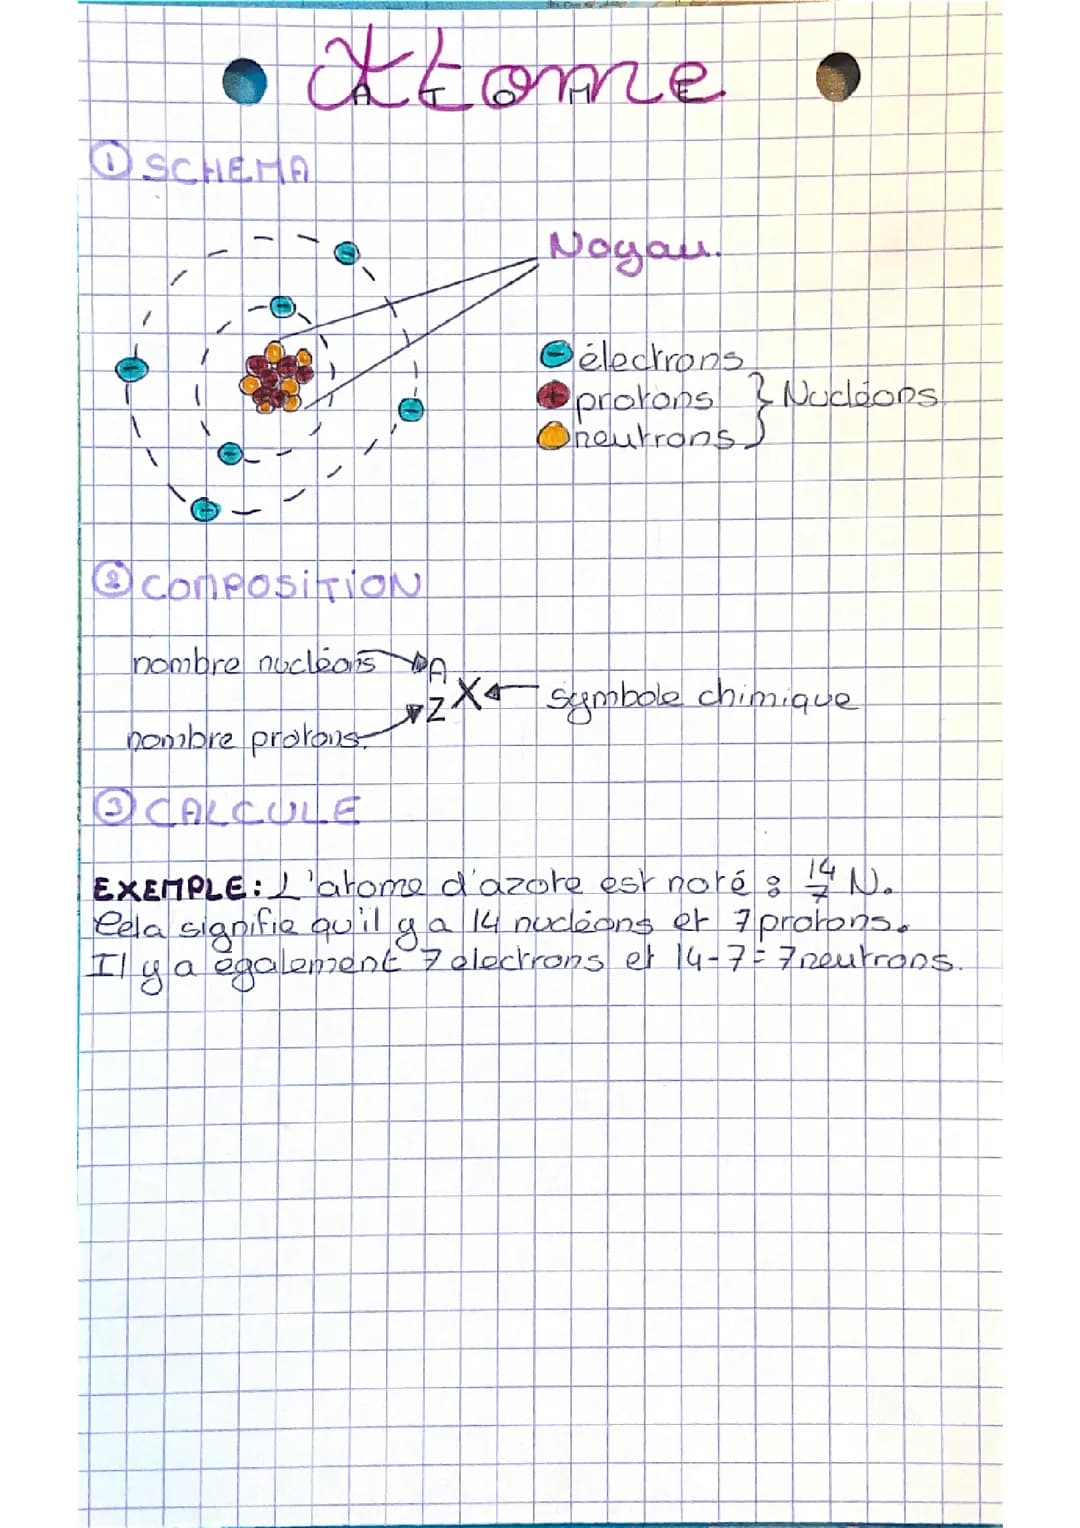 Atome
A T O M E
① SCHEMA
Noyau.
électrons
protons } Nucléons
neutrons
② COMPOSITION
nombre nucléons A
X symbole chimique
Z
nombre protons.
③ CALCULE
EXEMPLE: L'atome d'azote est noté : 14/7 N.
Cela signifie qu'il y a 14 nucléons et 7 protons.
Il y a également 7 electrons et 14-7=7 neutrons.